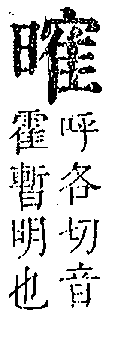 呼各切音
霍暫明也